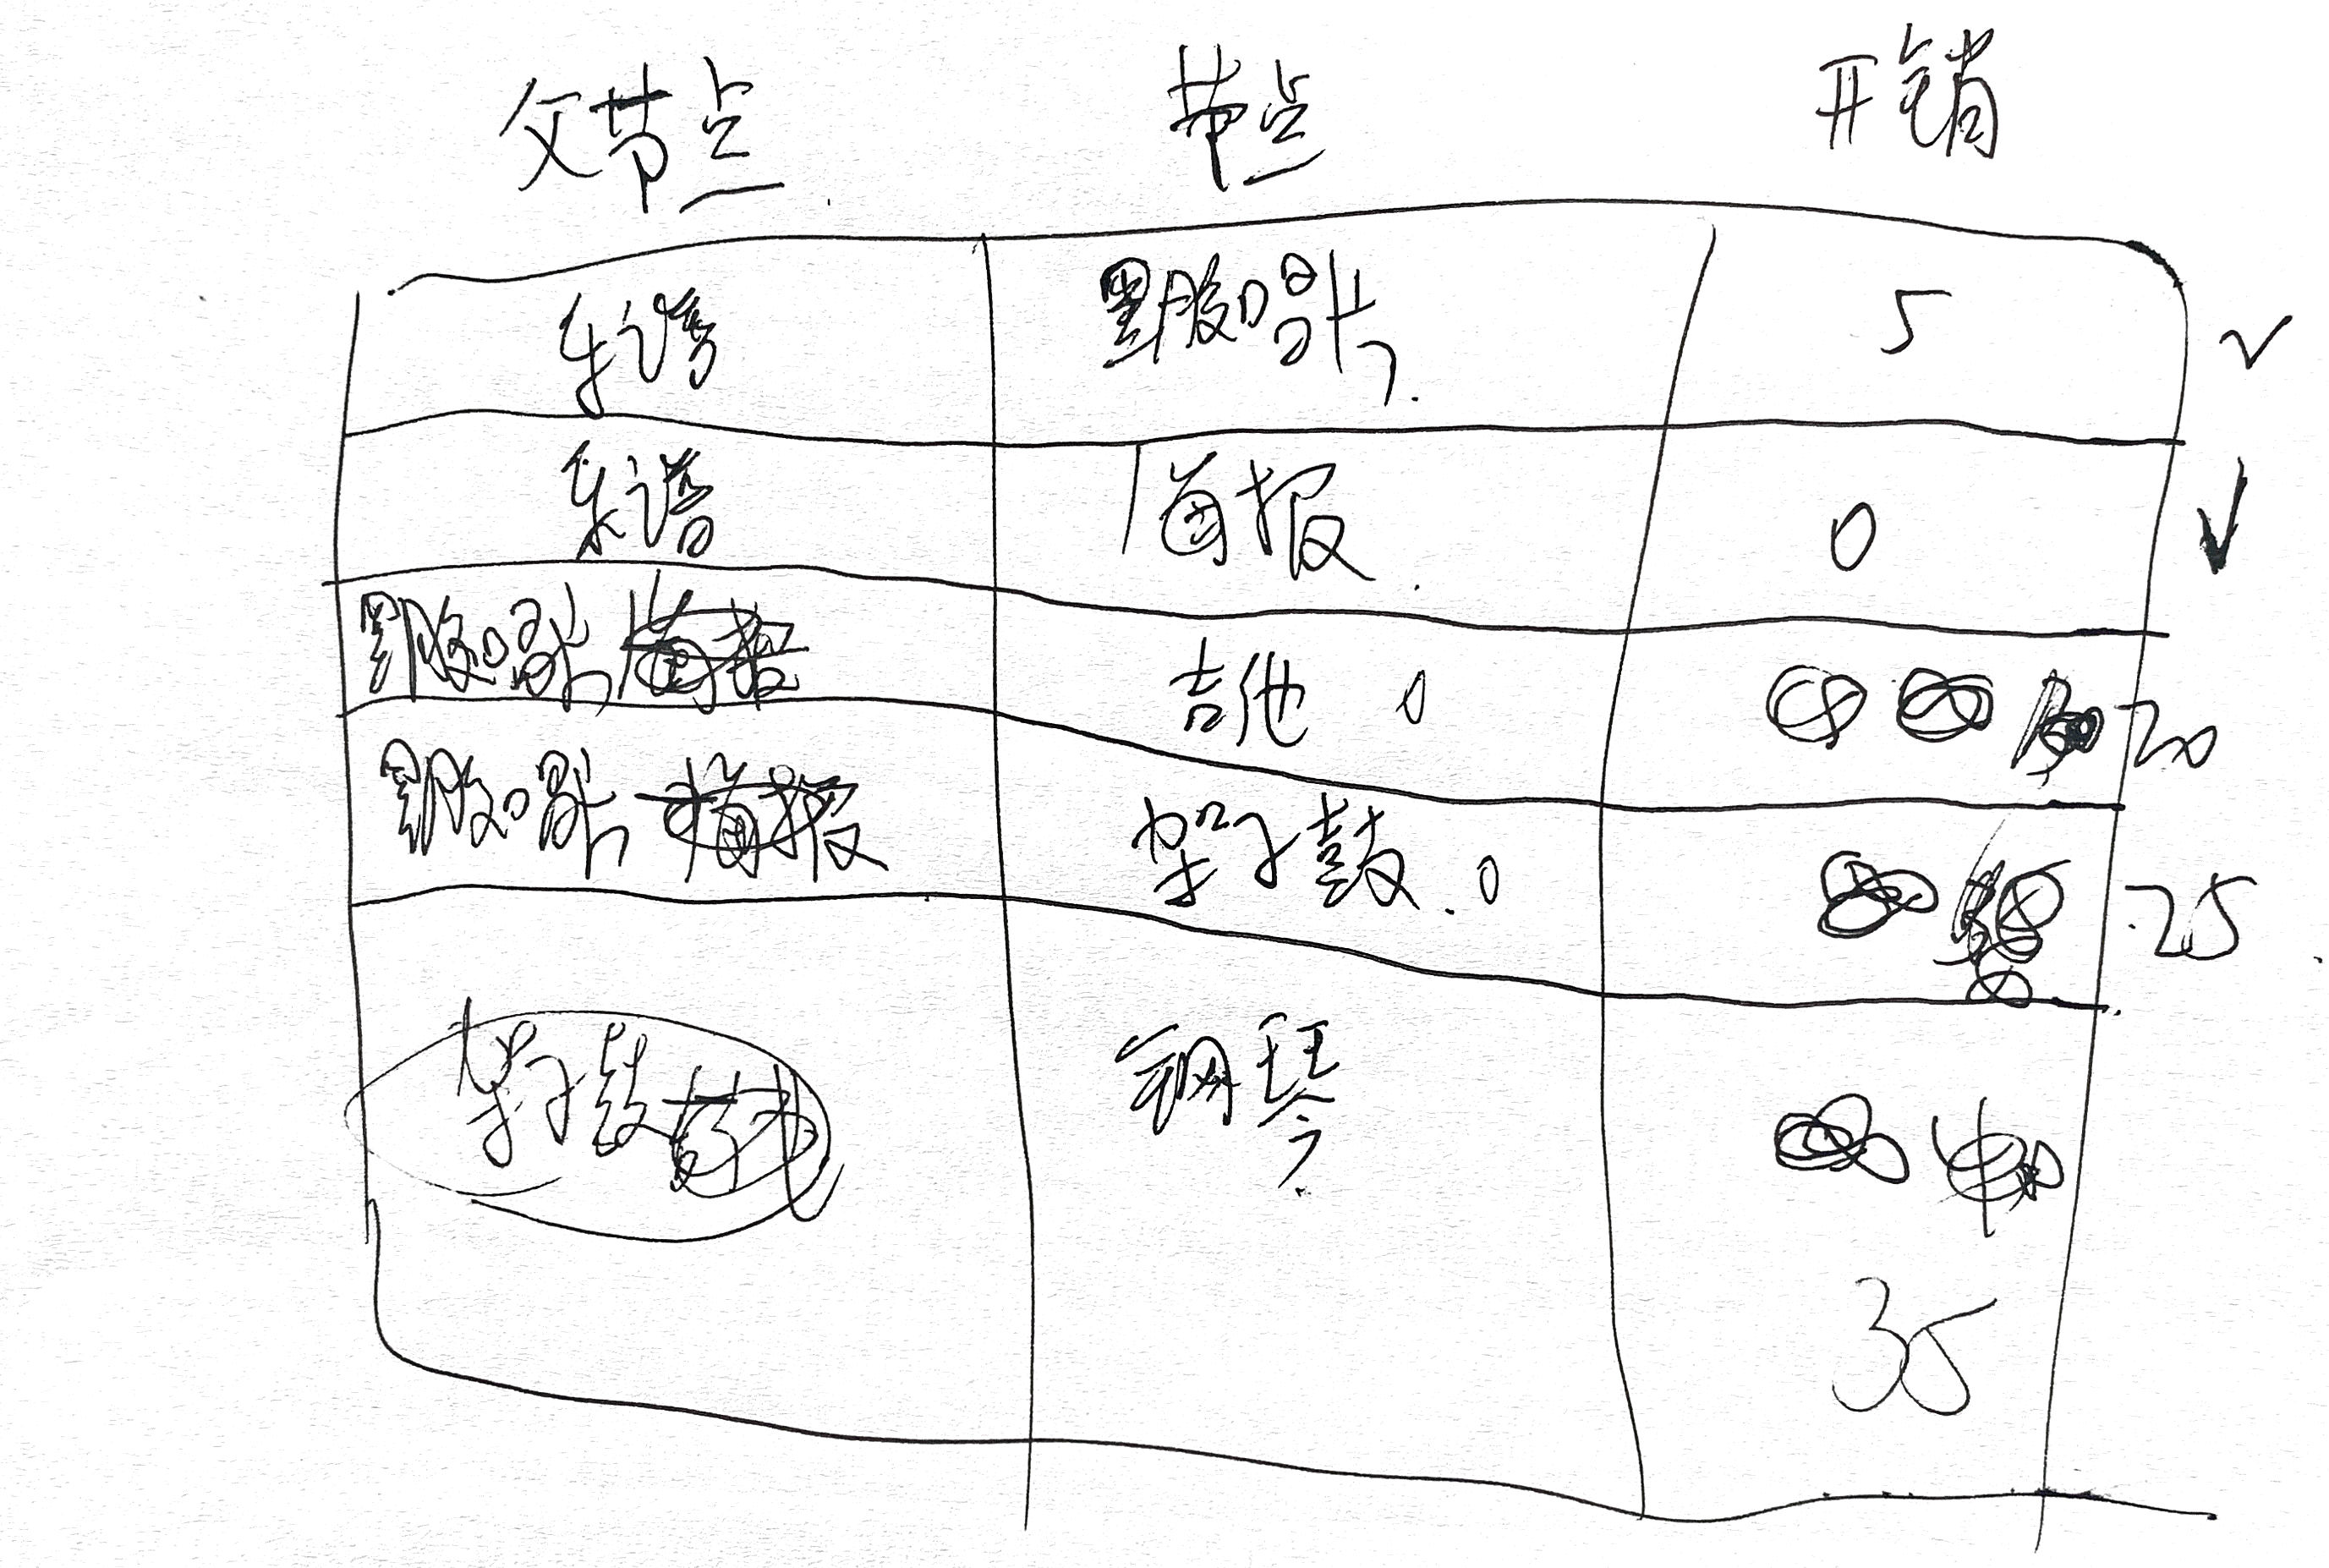 父节点 节点 开销
乐谱 黑胶唱片 5 ✓
乐谱 海报 0 ✓
黑胶唱片 海报 吉他 0 20
黑胶唱片 海报 架子鼓 0 25
架子鼓 吉他 钢琴
35